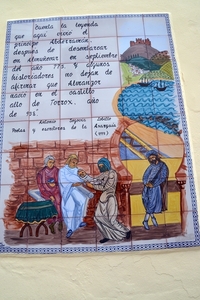 Cuenta la leyenda
que aquí vivió el
príncipe Abderraman,
después de desembarcar
en Almuñecar en septiembre
del año 755 y algunos
historiadores no dejan de
afirmar que Almanzor
nació en el castillo
alto de Torrox, año
de
Antonio Segovia
Poetas y escritores de la Axarquía